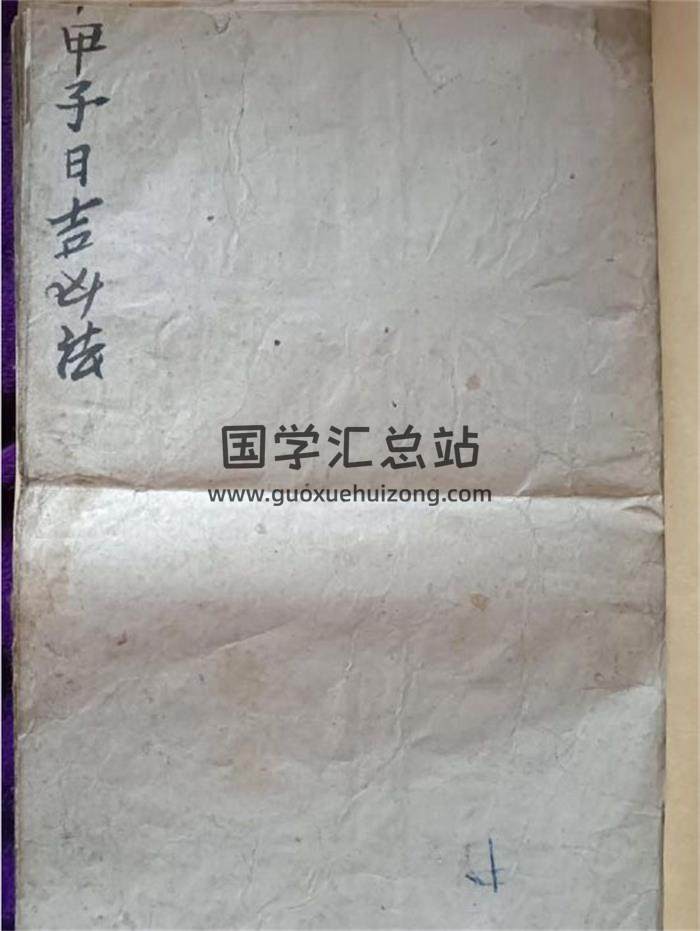 甲子日吉凶法
国学汇总站
www.guoxuehuizong.com